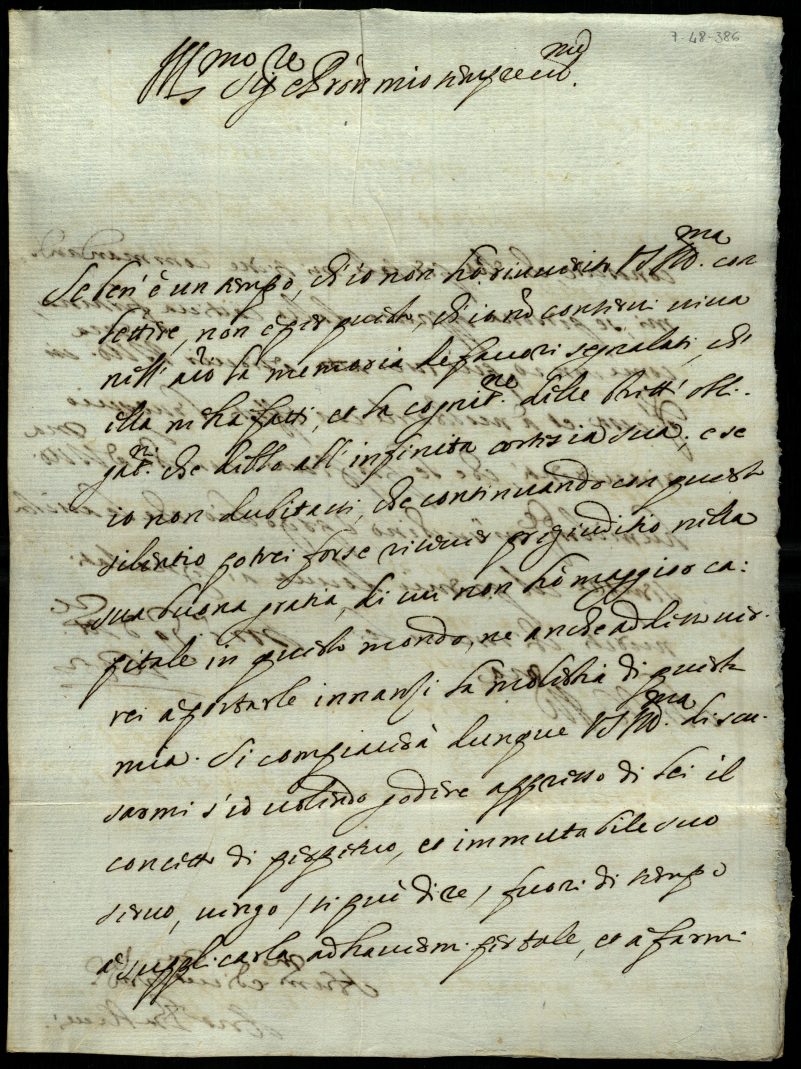 7-48-386
Ill.mo Sig.re e Pròn mio sempre
Se ben' è un tempo, ch'io non hò riuerito VS Ill.ma con
lettere, non è per questo, ch'io nõ conserui uiua
nell' aĩo la memoria de fauori segnalati, ch'
ella m'ha fatti, et la cognit.ne delle stritt' obli-
gat.ni che debbo all' infinita cortesia sua. e se
io non dubitassi, che continuando con questo
silentio potrei forse riceuer pregiuditio nella
sua buona gratia, di cui non hò maggior ca:
pitale in questo mondo, ne anche adesso uer-
rei a portarle innanzi la molestia di questa
mia. Si compiacerà dunque VS Ill.ma di scu-
sarmi s'io uolendo godere appresso di lei il
concetto di perpetuo, et immutabile suo
seruo, uengo / si può dire / fuori di tempo
a supplicarla ad hauermi per tale, et a farmi